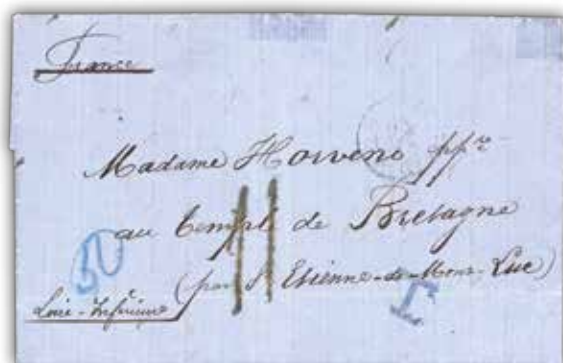 France
Madame Horvene ppre
au temple de Bretagne
(par St Etienne-de-Mont-Luc)
Loire-Inférieure
11